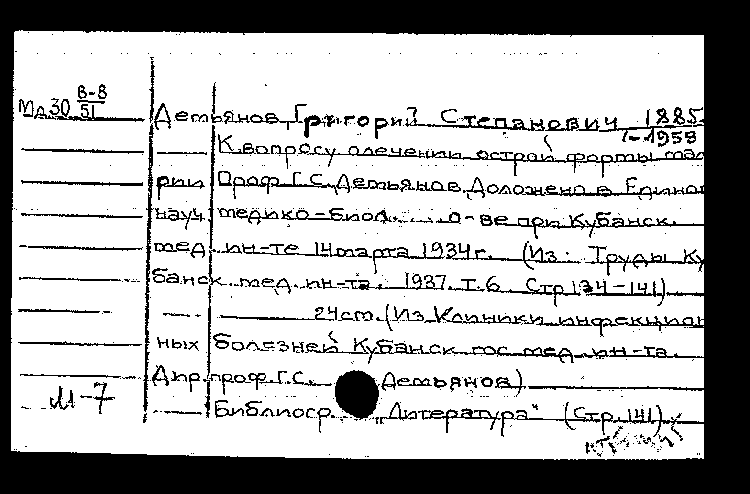 Мд30 В-8/51
Демьянов, Григорий Степанович 1885
-1959
К вопросу о лечении острой формы мал
рии Проф. Г.С. Демьянов. Доложено в Единой
науч. медико-биол. о-ве при Кубанск.
мед. ин-те 14 марта 1934 г. (Из: Труды Ку
банск. мед. ин-та. 1937. Т.6. Стр 134-141)
24 см. (Из клиники инфекцион
ных болезней Кубанск. гос. мед. ин-та.
Дир. проф. Г.С. Демьянов)
М-7
Библиогр. „Литература“ (Стр. 141)